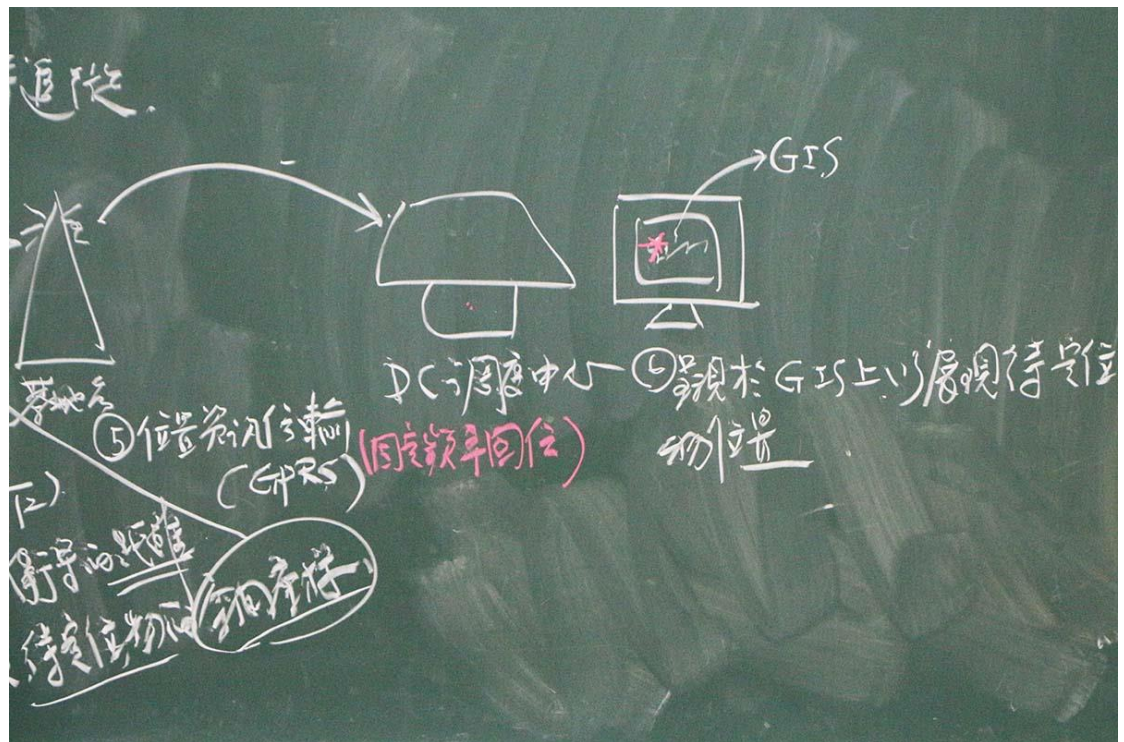 追蹤.
GIS
基地台
DC調度中心
⑥呈現於GIS上以展現待定位
物位置
⑤位置資訊傳輸
(GPRS)
(固定頻率回位)
衛星的距離
待定位物的空間座標